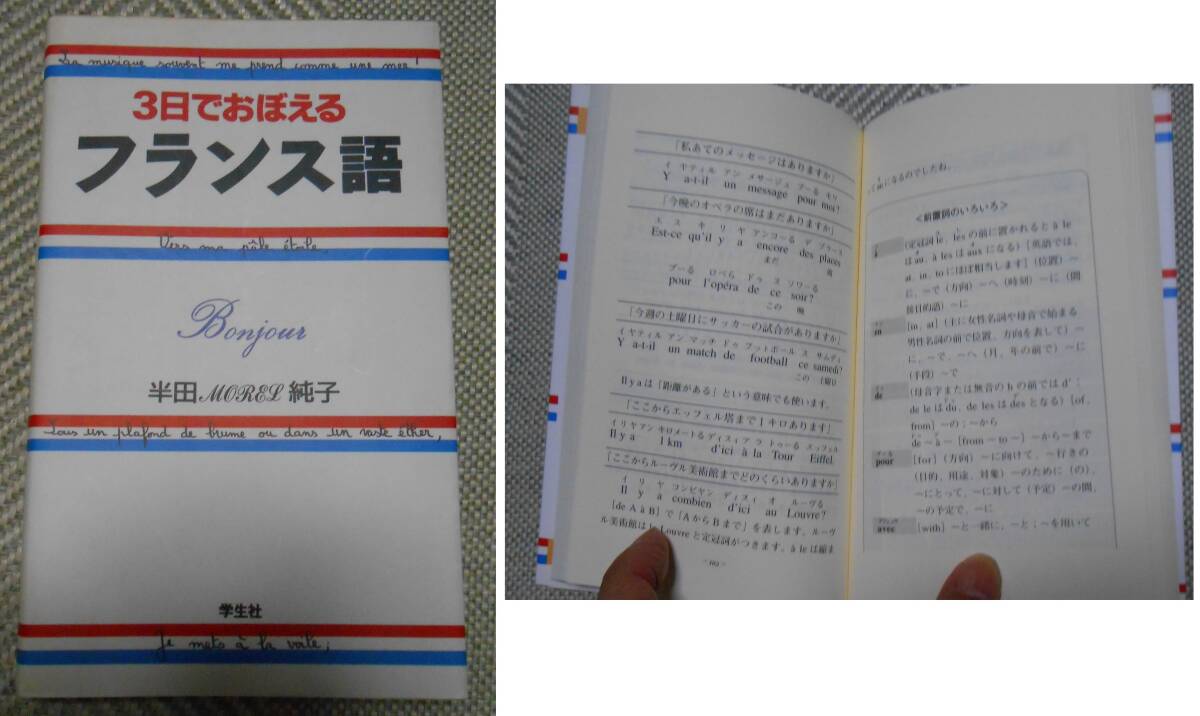 La musique souvent me prend comme une mer!
3日でおぼえる
フランス語
Vers ma pâle étoile,
Bonjour
半田MOREL純子
Sous un plafond de brume ou dans un vaste éther,
学生社
Je mets à la voile;
「私あてのメッセージはありますか」
イ ヤティル アン メサージュ プーる モワ
Y a-t-il un message pour moi?
「今晩のオペラの席はまだありますか」
エ ス キ リ ヤ アンコーる デ プラース
Est-ce qu'il y a encore des places
まだ 席
プーる ロペら ドゥ ス ソワーる
pour l'opéra de ce soir?
この 晩
「今週の土曜日にサッカーの試合がありますか」
イ ヤティル アン マッチ ドゥ フットボール ス サムディ
Y a-t-il un match de football ce samedi?
この 土曜日
Il y a は「距離がある」という意味でも使います。
「ここからエッフェル塔まで1キロあります」
イ リ ヤ アン キロメートる ディスィ ア ラ トゥーる エッフェル
Il y a 1 km d'ici à la Tour Eiffel.
「ここからルーヴル美術館までどのくらいありますか」
イ リ ヤ コンビヤン ディスィ オ ルーヴる
Il y a combien d'ici au Louvre?
[de A à B] で「AからBまで」を表します。ルーヴ
ル美術館は le Louvre と定冠詞がつきます。à le は縮ま
って au になるのでしたね。
<前置詞のいろいろ>
à (定冠詞 le, les の前に置かれると à le
は au, à les は aux になる) [英語では,
at, in, to にほぼ相当します] (位置) ~
に, ~で (方向) ~へ (時刻) ~に (間
接目的語) ~に
en [in, at] (主に女性名詞や母音で始まる
男性名詞の前で位置, 方向を表して) ~
に, ~で, ~へ (月, 年の前で) ~に
(手段) ~で
de (母音字または無音の h の前では d';
de le は du, de les は des となる) [of,
from] ~の; ~から
de ~ à ~ [from ~ to ~] ~から~まで
プーる
pour [for] (方向) ~に向けて, ~行きの
(目的, 用途, 対象) ~のために (の),
~にとって, ~に対して (予定) ~の間,
~の予定で, ~に
avec [with] ~と一緒に, ~と; ~を用いて